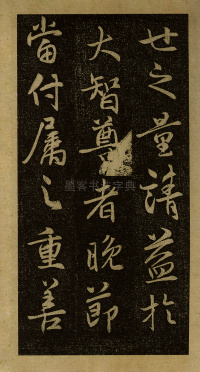 世之量請益於
大智尊者晚節
當付屬之重善
墨客书法字典